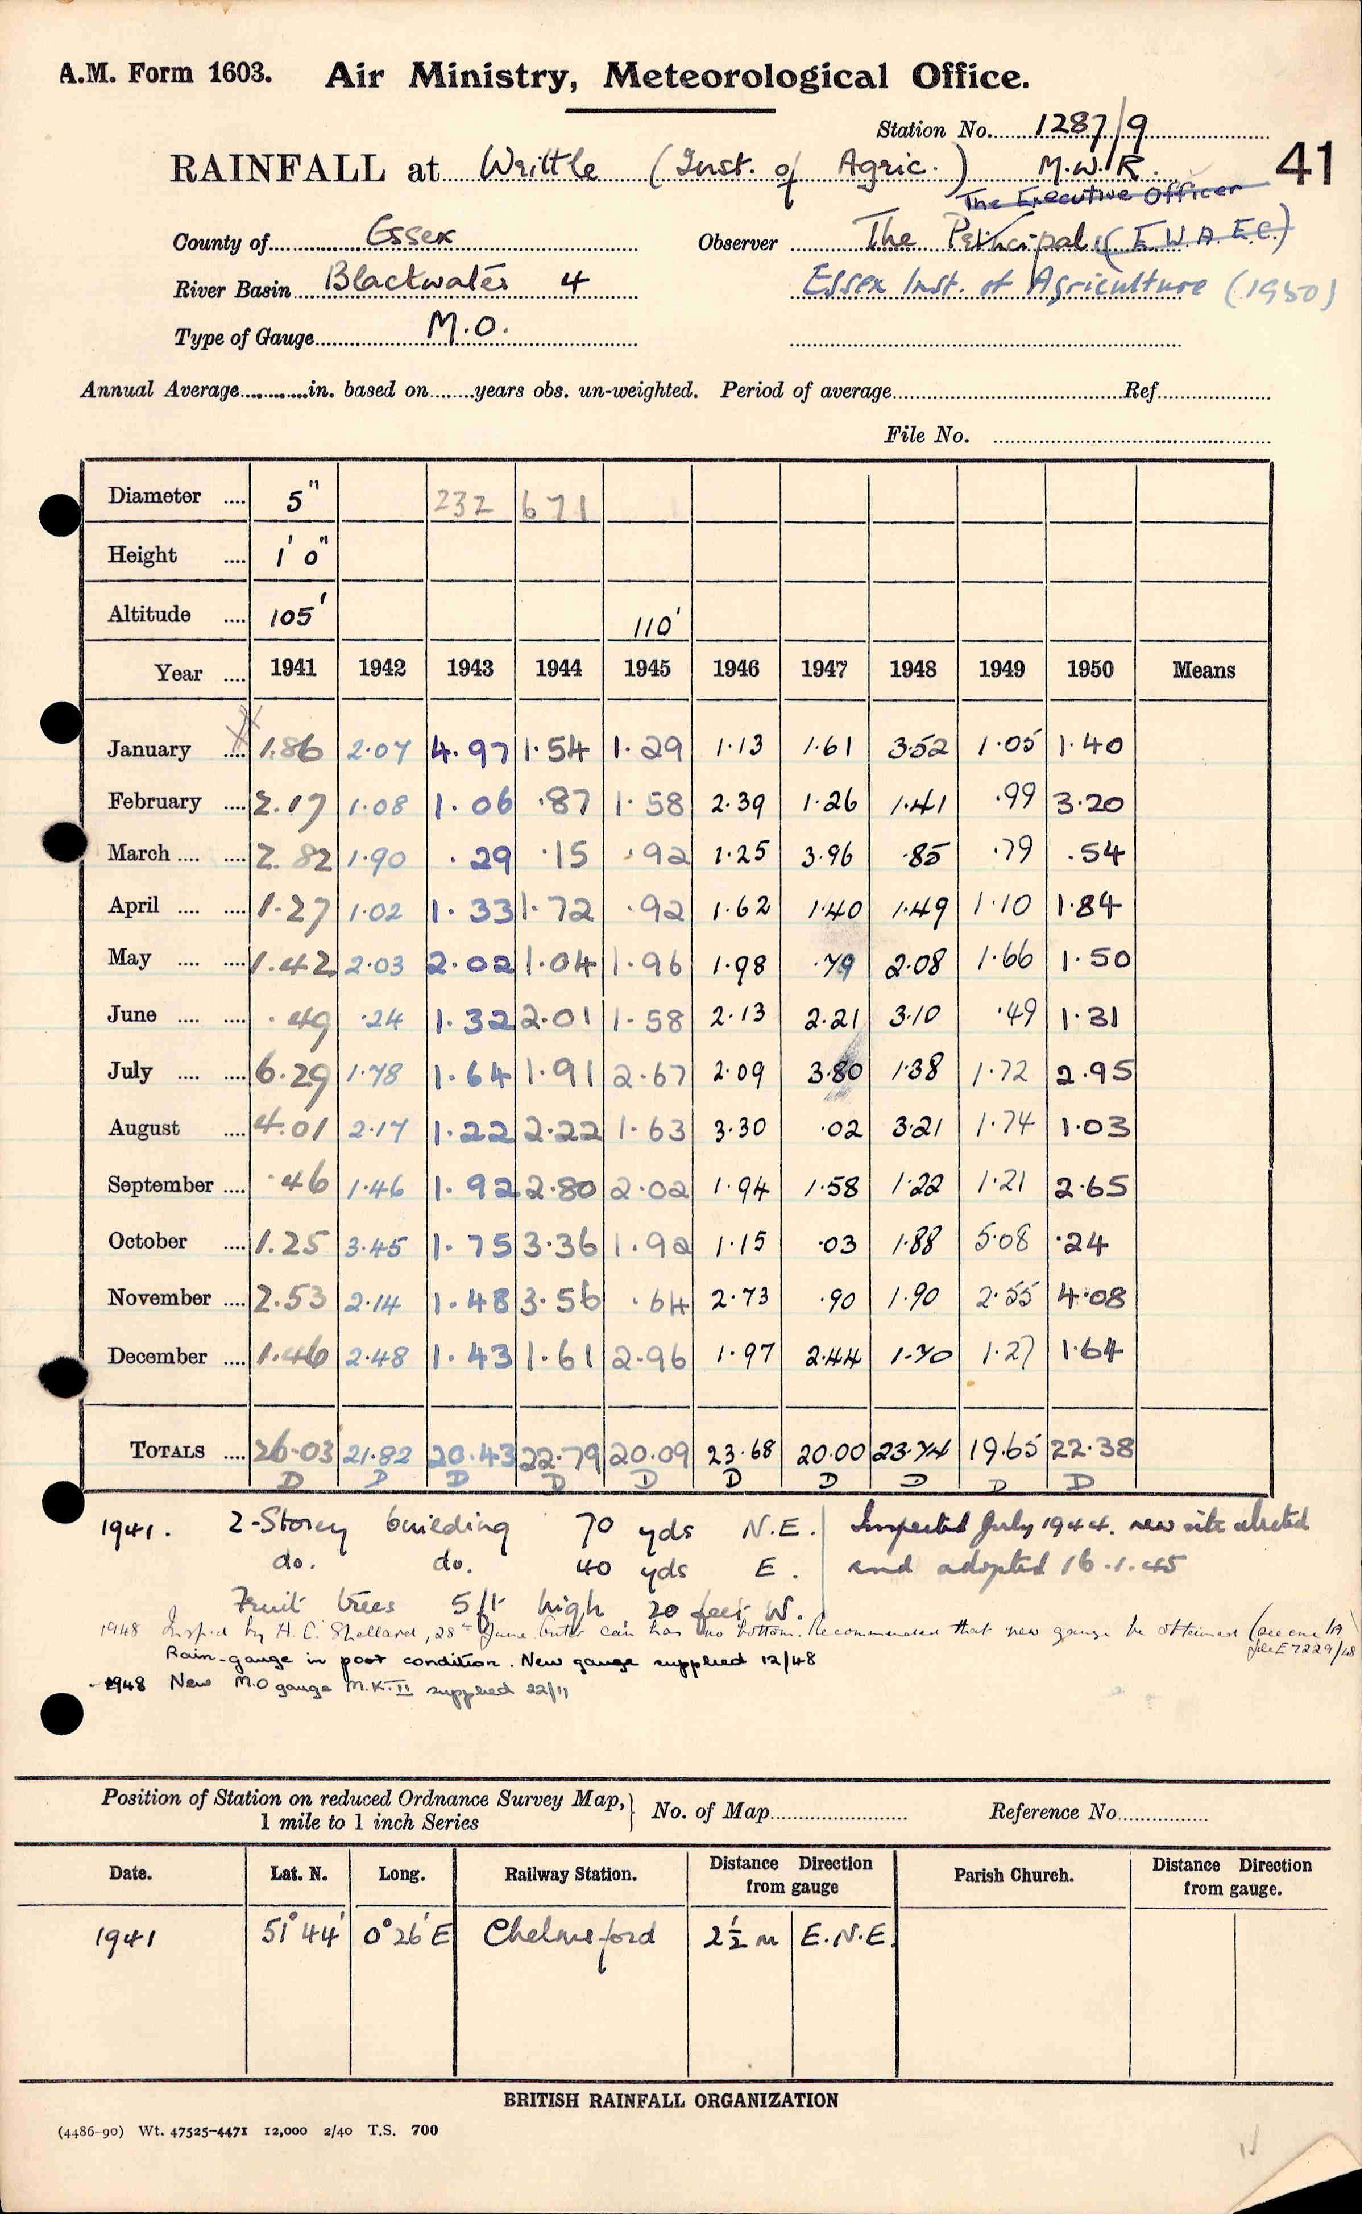 A.M. Form 1603. Air Ministry, Meteorological Office.
Station No. 1287/9
41
RAINFALL at Writtle (Inst. of Agric.) M.W.R.
The Executive Officer
County of Essex Observer The Principal (E.W.A.E.C.)
River Basin Blackwater 4 Essex Inst. of Agriculture (1950)
Type of Gauge M.O.
Annual Average in. based on years obs. un-weighted. Period of average Ref.
File No.
Diameter .... 5" 232 671
Height .... 1' 0"
Altitude .... 105' 110'
Year .... 1941 1942 1943 1944 1945 1946 1947 1948 1949 1950 Means
January .... 1.86 2.07 4.97 1.54 1.29 1.13 1.61 3.52 1.05 1.40
February .... 2.17 1.08 1.06 .87 1.58 2.39 1.26 1.41 .99 3.20
March .... .... 2.82 1.90 .29 .15 .92 1.25 3.96 .85 .79 .54
April .... .... 1.27 1.02 1.33 1.72 .92 1.62 1.40 1.49 1.10 1.84
May .... .... 1.42 2.03 2.02 1.04 1.96 1.98 .79 2.08 1.66 1.50
June .... .... .49 .24 1.32 2.01 1.58 2.13 2.21 3.10 .49 1.31
July .... .... 6.29 1.78 1.64 1.91 2.67 2.09 3.80 1.38 1.72 2.95
August .... 4.01 2.17 1.22 2.22 1.63 3.30 .02 3.21 1.74 1.03
September .... .46 1.46 1.92 2.80 2.02 1.94 1.58 1.22 1.21 2.65
October .... 1.25 3.45 1.75 3.36 1.92 1.15 .03 1.88 5.08 .24
November .... 2.53 2.14 1.48 3.56 .64 2.73 .90 1.90 2.55 4.08
December .... 1.46 2.48 1.43 1.61 2.96 1.97 2.44 1.70 1.27 1.64
TOTALS .... 26.03 21.82 20.43 22.79 20.09 23.68 20.00 23.74 19.65 22.38
D D D D D D D D D D
1941. 2-Storey building 70 yds N.E. Inspected July 1944. new site selected
do. do. 40 yds E. and adopted 16.1.45
Fruit trees 5 ft high 20 feet W.
1948 Insp'd by H.C. Shellard, 28th June. Outer can has no bottom. Recommended that new gauge be obtained (see file E7229/48
Rain-gauge in poor condition. New gauge supplied 12/48
1948 New M.O gauge M.K. II supplied 22/11
Position of Station on reduced Ordnance Survey Map, 1 mile to 1 inch Series No. of Map Reference No.
Date. Lat. N. Long. Railway Station. Distance Direction from gauge Parish Church. Distance Direction from gauge.
1941 51° 44' 0° 26' E Chelmsford 2½ m E.N.E.
BRITISH RAINFALL ORGANIZATION
(4486-90) Wt. 47525-4471 12,000 2/40 T.S. 700